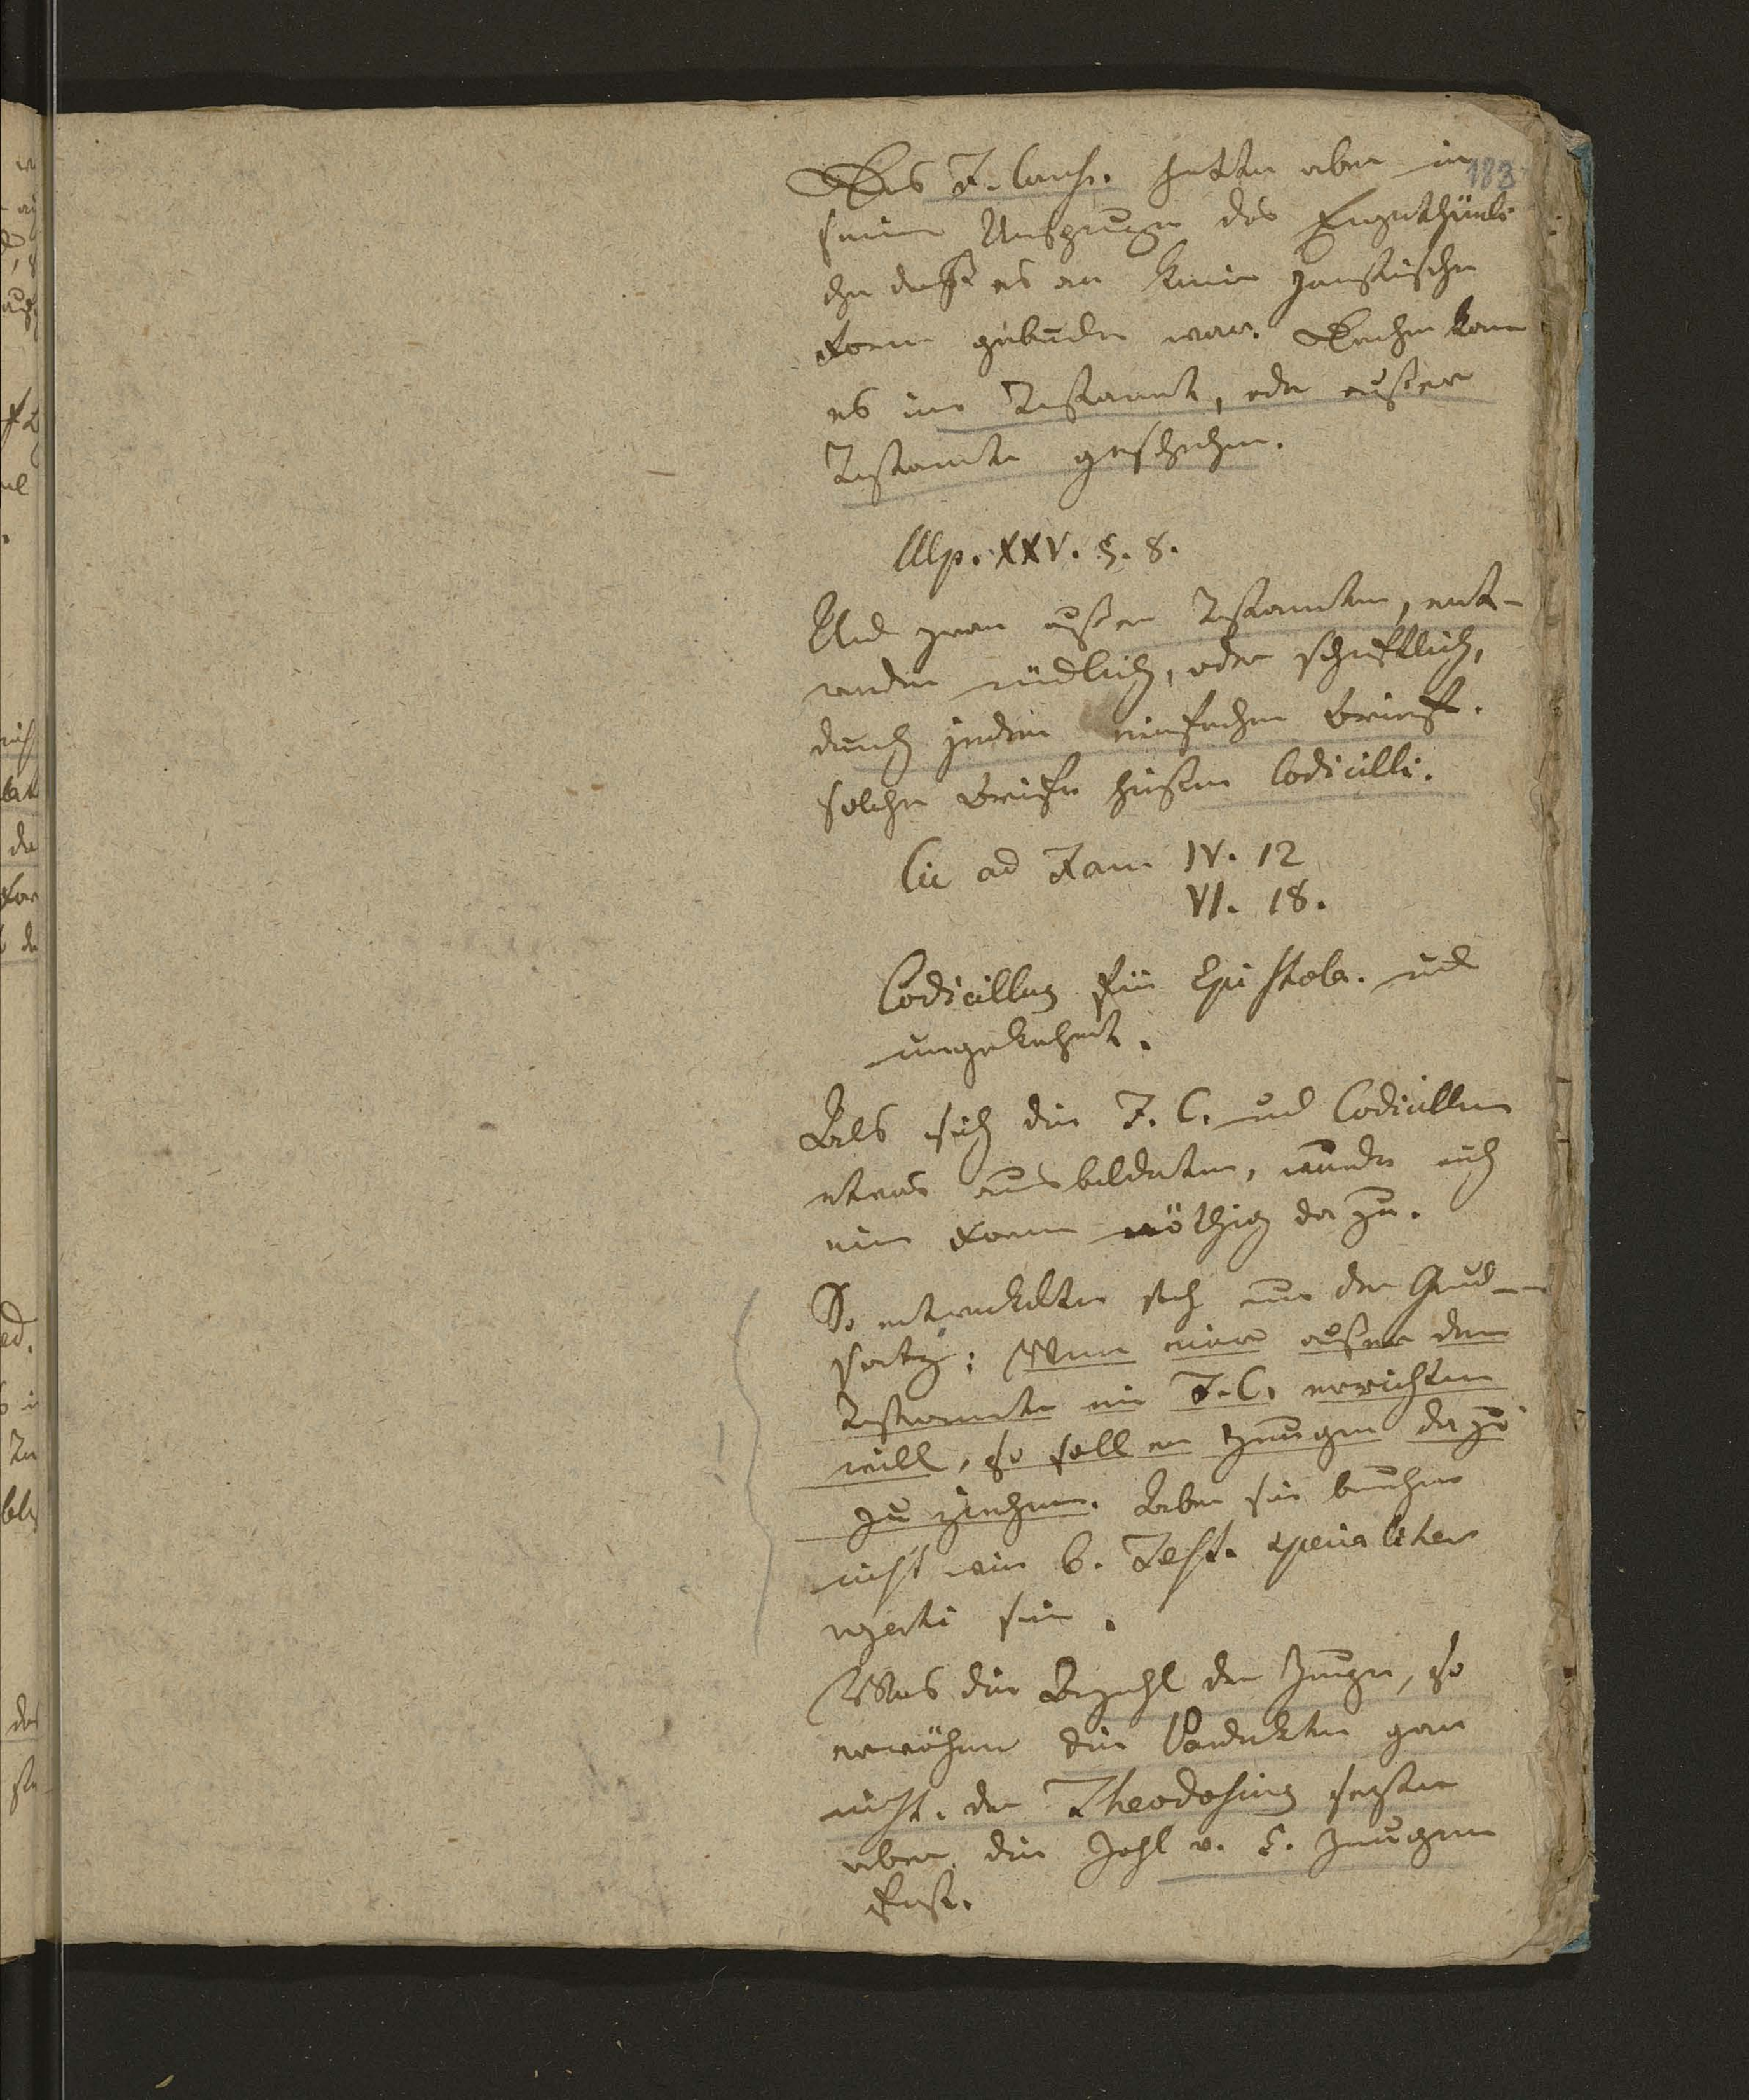 183
Das F. Comiss. hatte aber in
seinem Ursprunge das Eigenthümli
che daß es an keine juristische
Form gebunden war. Daher kam
es im Testament, oder außer
Testamente geschehen.
Ulp. XXV. §. 8.
Und zwar außer Testamenten, ent-
weder mündlich, oder schriftlich,
durch jeden einfachen Brief.
solche Briefe hießen Codicilli.
Cic ad Fam IV. 12
VI. 18.
Codicillus für Epistola. und
umgekehrt.
Als sich die F. C. und Codicillen
etwas ausbildeten, wurde auch
eine Form nöthig dazu.
So entwickelte sich nun der Grund-
satz: Wenn einer außer dem
Testamente ein F. C. errichten
will, so soll er Zeugen dazu
zu ziehen. Aber sie brauchen
nicht wie b. Test. specialiter
rogati sein.
Was die Anzahl der Zeugen, so
erwähnen die Pandekten gar
nicht. der Theodosius setzte
aber die Zahl v. 5. Zeugen
fest.